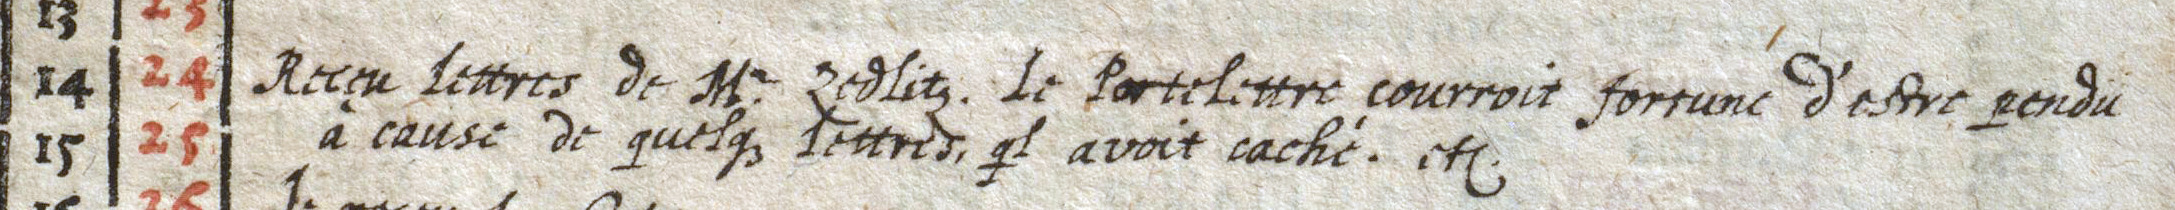 13 23
14 24 Reçeu lettres de Mr. Zedlitz. Le Portelettre courroit fortune d'estre pendu
15 25 à cause de quelq, lettres, ql avoit caché. etc.
16 26